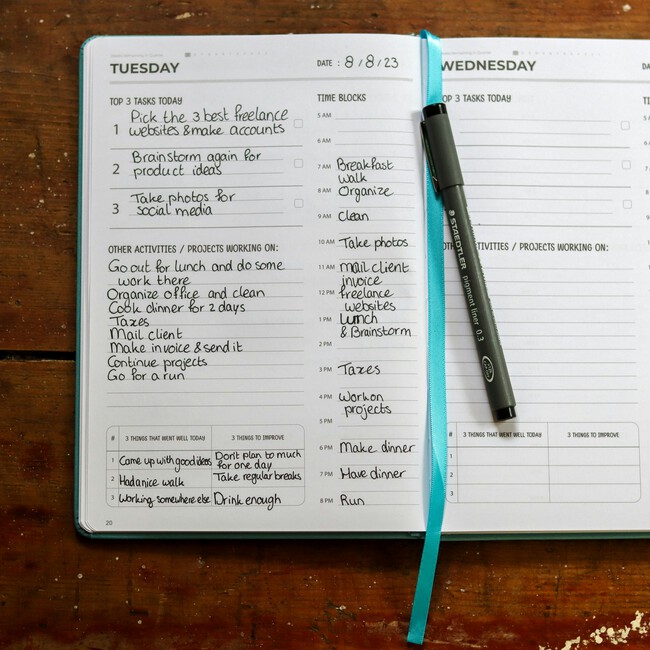 TUESDAY
DATE : 8/8/23
TOP 3 TASKS TODAY
1 Pick the 3 best freelance
websites & make accounts
2 Brainstorm again for
product ideas
3 Take photos for
social media
OTHER ACTIVITIES / PROJECTS WORKING ON:
Go out for lunch and do some
work there
Organize office and clean
Cook dinner for 2 days
Taxes
Mail client
Make invoice & send it
Continue projects
Go for a run
# 3 THINGS THAT WENT WELL TODAY 3 THINGS TO IMPROVE
1 Came up with good ideas Don't plan to much
for one day
2 Had a nice walk Take regular breaks
3 Working somewhere else Drink enough
20
TIME BLOCKS
5 AM
6 AM
7 AM Breakfast
walk
8 AM Organize
9 AM Clean
10 AM Take photos
11 AM Mail client
invoice
12 PM freelance
websites
1 PM Lunch
& Brainstorm
2 PM
3 PM Taxes
4 PM Work on
projects
5 PM
6 PM Make dinner
7 PM Have dinner
8 PM Run
WEDNESDAY
DA
TOP 3 TASKS TODAY
1
TI
5
6
7
8
9
10
1
OTHER ACTIVITIES / PROJECTS WORKING ON:
# 3 THINGS THAT WENT WELL TODAY 3 THINGS TO IMPROVE
1
2
3
STAEDTLER
pigment liner 0.3